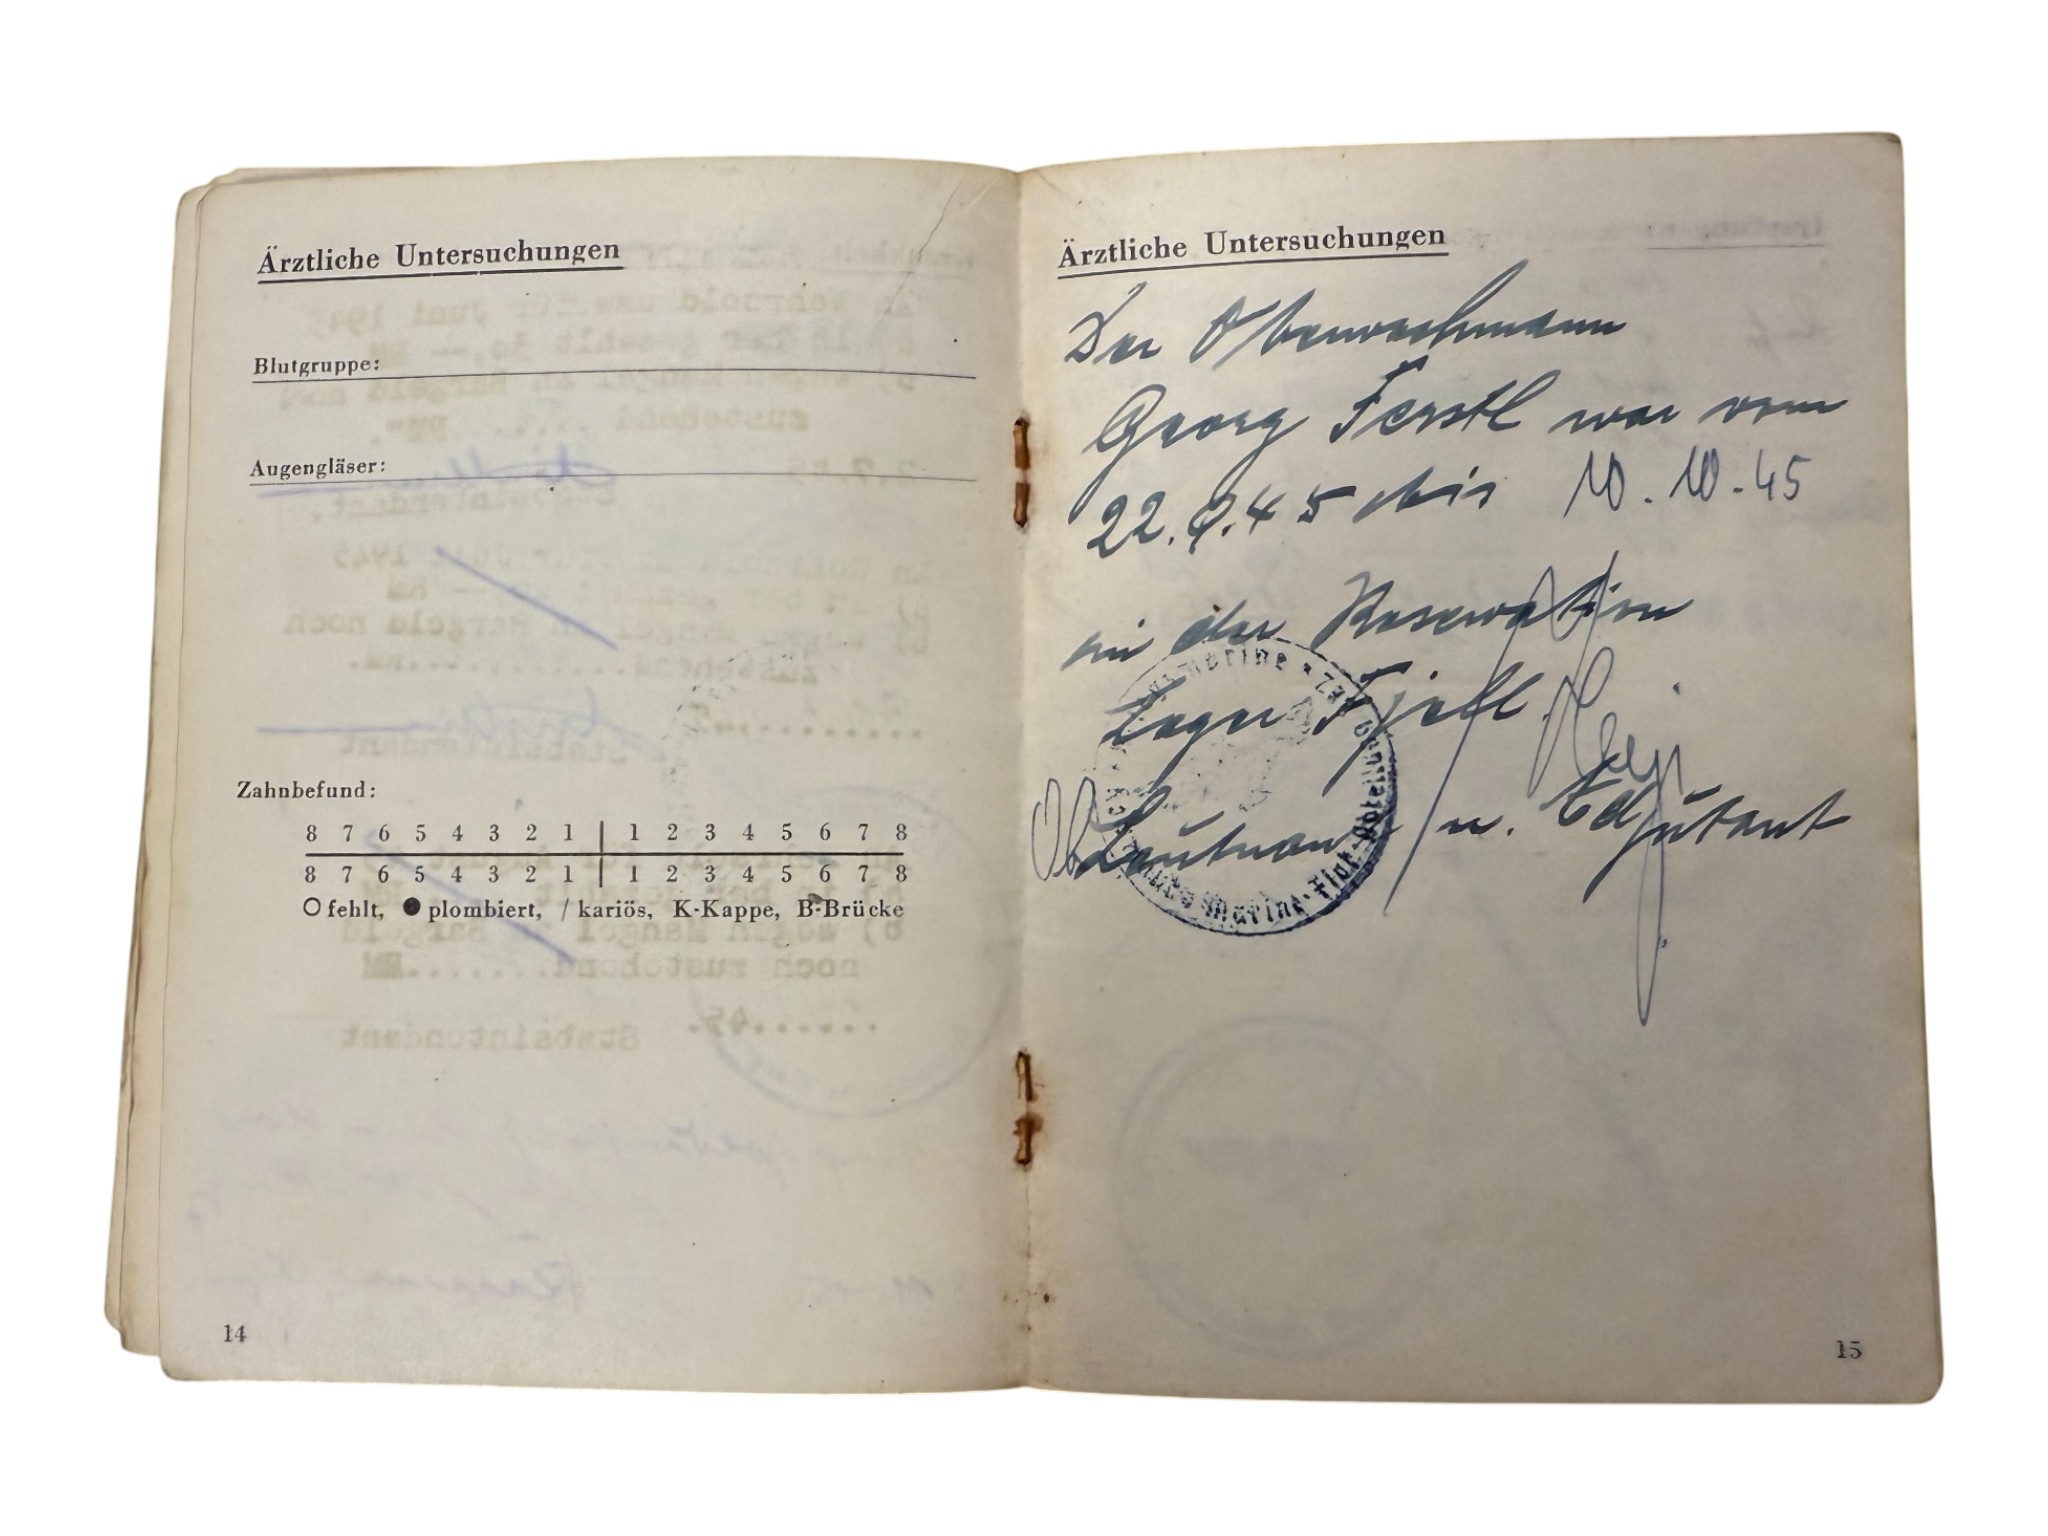 Ärztliche Untersuchungen
Blutgruppe:
Augengläser:
Zahnbefund:
8 7 6 5 4 3 2 1 | 1 2 3 4 5 6 7 8
8 7 6 5 4 3 2 1 | 1 2 3 4 5 6 7 8
O fehlt, ● plombiert, / kariös, K-Kappe, B-Brücke
14
Ärztliche Untersuchungen
Der Oberwachmann
Georg Ferstl war vom
22. .45 bis 10.10.45
in der Reservation
Lager Fjell.
Ob Leutnant u. Adjutant
Marine-Flak-Abteilung
15